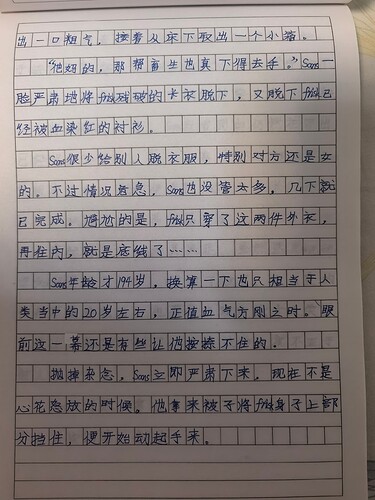 出一口粗气，接着从床下取出一个小箱。
“他妈的，那帮畜生也真下得去手。”Sans一
脸严肃地将frisk残破的卡衣脱下，又脱下frisk已
经被血染红的衬衫。
Sans很少给别人脱衣服，特别对方还是女
的。不过情况危急，Sans也没管太多，几下就
已完成。尴尬的是，frisk只穿了这两件外衣，
再往内，就是底线了……
Sans年龄才194岁，换算一下也只相当于人
类当中的20岁左右，正值血气方刚之时。眼
前这一幕还是有些让他按捺不住的。
抛掉杂念，Sans立即严肃下来。现在不是
心花怒放的时候。他拿来被子将frisk身子上部
分挡住，便开始动起手来。